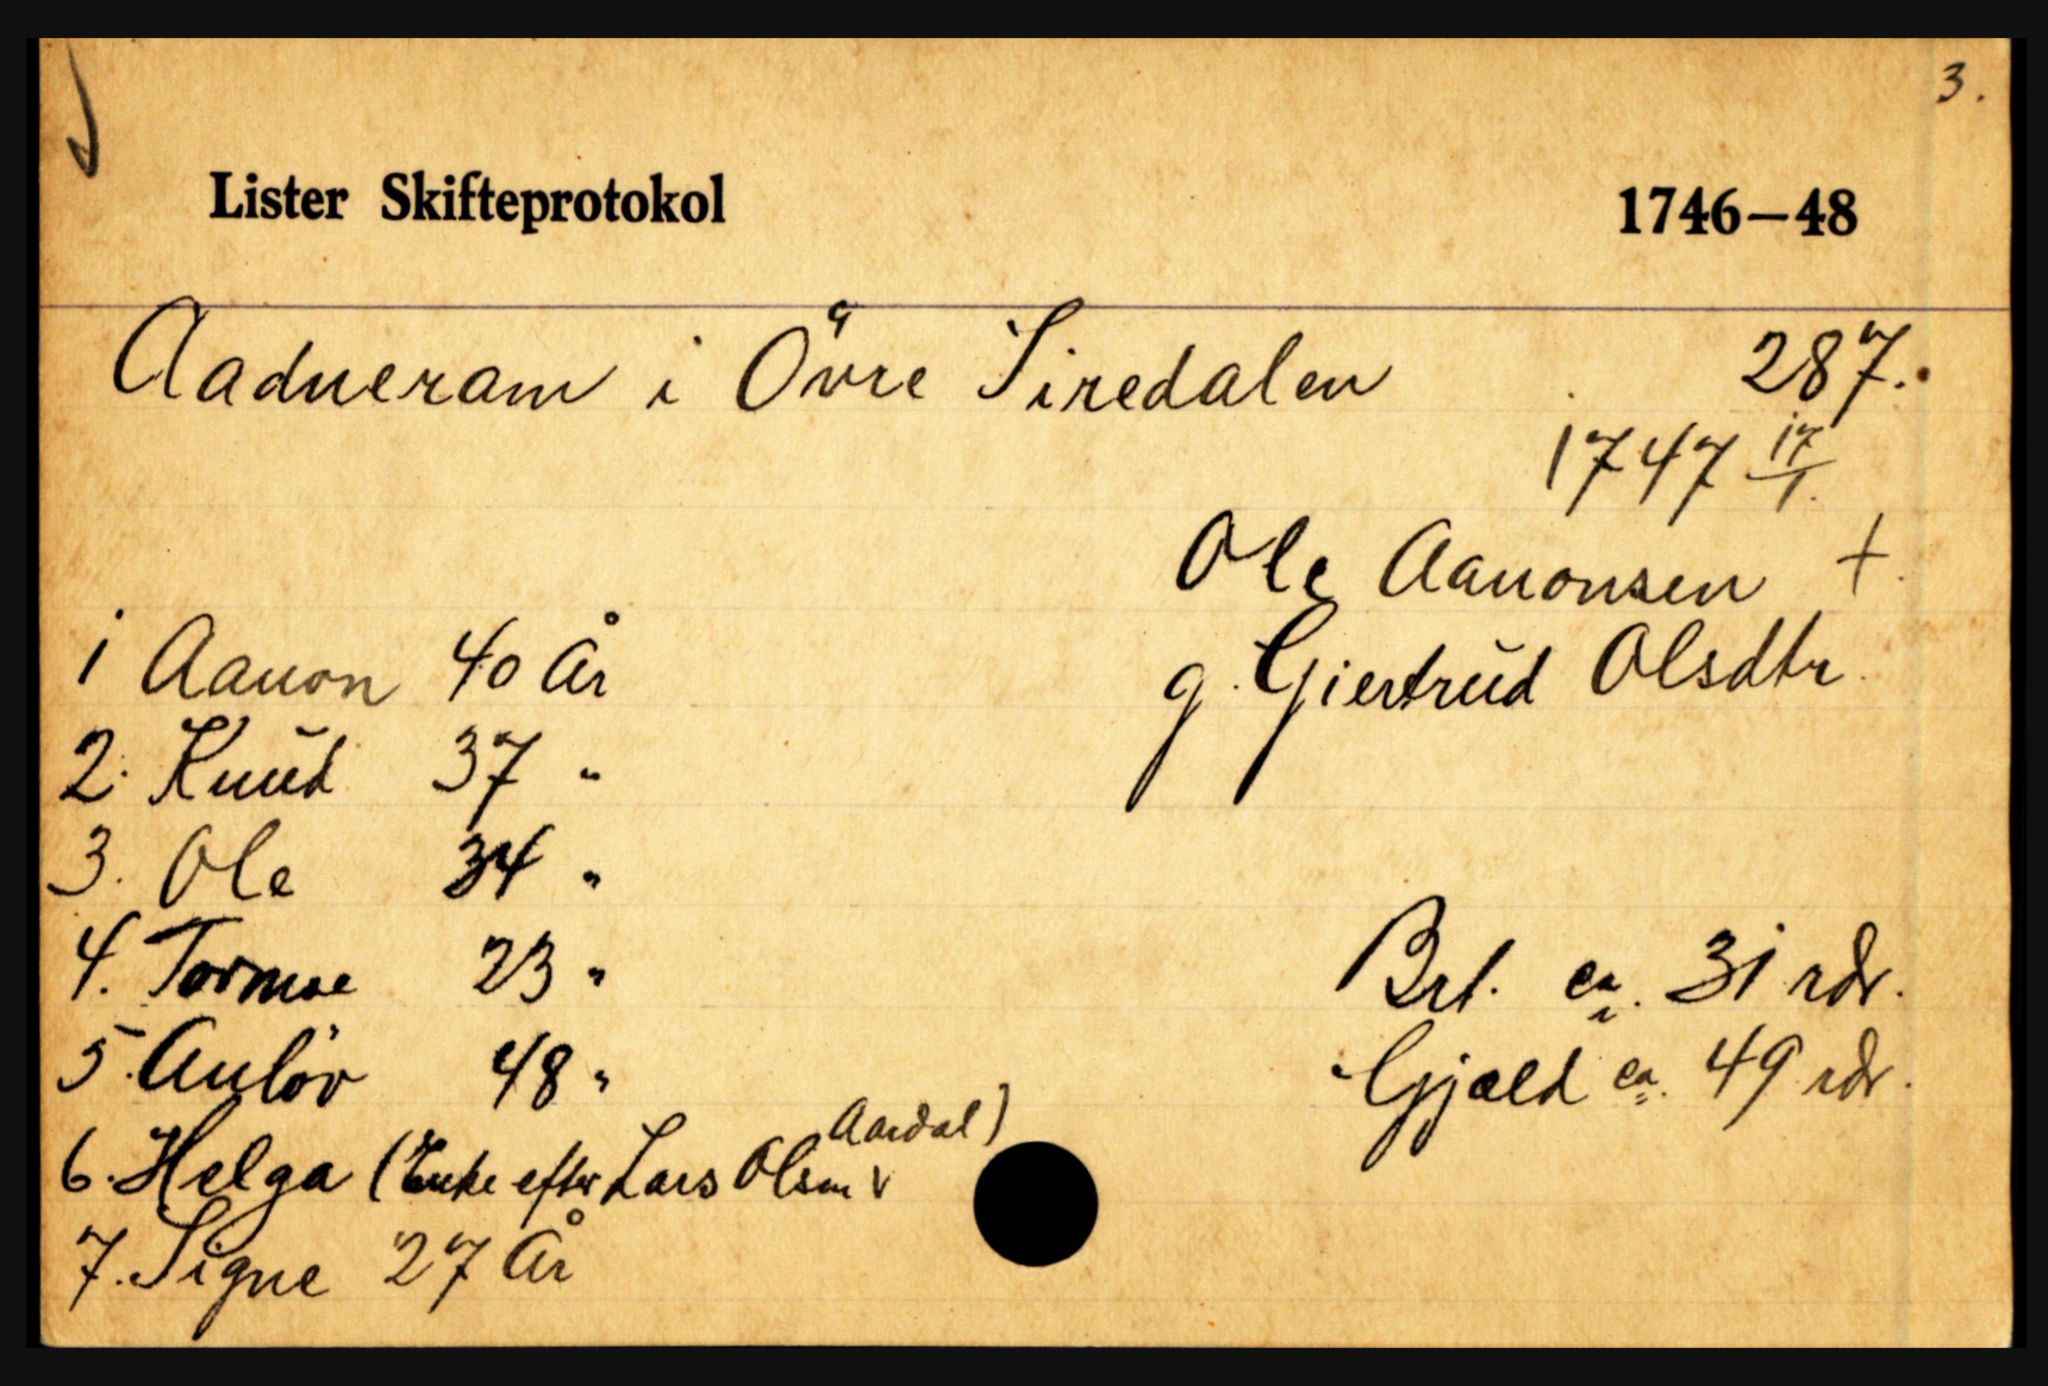 3.
Lister Skifteprotokol 1746—48
Aadneram i Övre Siredalen 287.
1747 17/1.
Ole Aanonsen +.
g. Giertrud Olsdtr.
1 Aanon 40 År
2. Knud 37 "
3. Ole 34 "
4. Tormoe 23 "
5. Anlöv 48 "
6. Helga (Enke efter Lars Olsen v Aardal)
7. Signe 27 År
Brt. ca. 31 rdr.
Gjæld ca. 49 rdr.